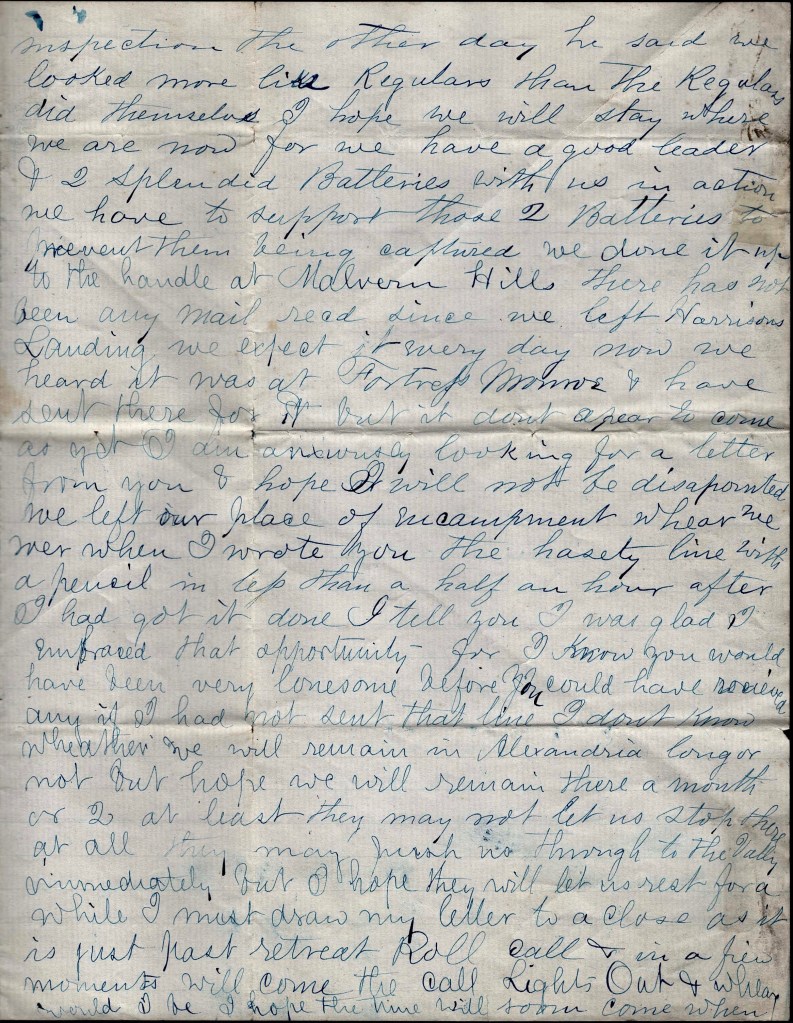 inspection the other day he said we
looked more like Regulars than the Regulars
did themselves I hope we will stay where
we are now for we have a good leader
& 2 Splendid Batteries with us in action
we have to support those 2 Batteries to
prevent them being captured we done it up
to the handle at Malvern Hills there has not
been any mail recd since we left Harrisons
Landing we expect it every day now we
heard it was at Fortress Monroe & have
sent there for it but it dont apear to come
as yet I am anxiously looking for a letter
from you & hope I will not be disapointed
we left our place of encampment whear we
wer when I wrote you the hasety line with
a pencil in less than a half an hour after
I had got it done I tell you I was glad I
embraced that opportunity for I Know you would
have been very lonesome before you could have recieved
any if I had not sent that line I dont Know
wheather we will remain in Alexandria long or
not but hope we will remain there a month
or 2 at least they may not let us stop there
at all they may push us through to the Vally
immediately but I hope they will let us rest for a
while I must draw my letter to a close as it
is just past retreat Roll call & in a few
moments will come the call Lights Out & whear
would I be I hope the time will soon come when